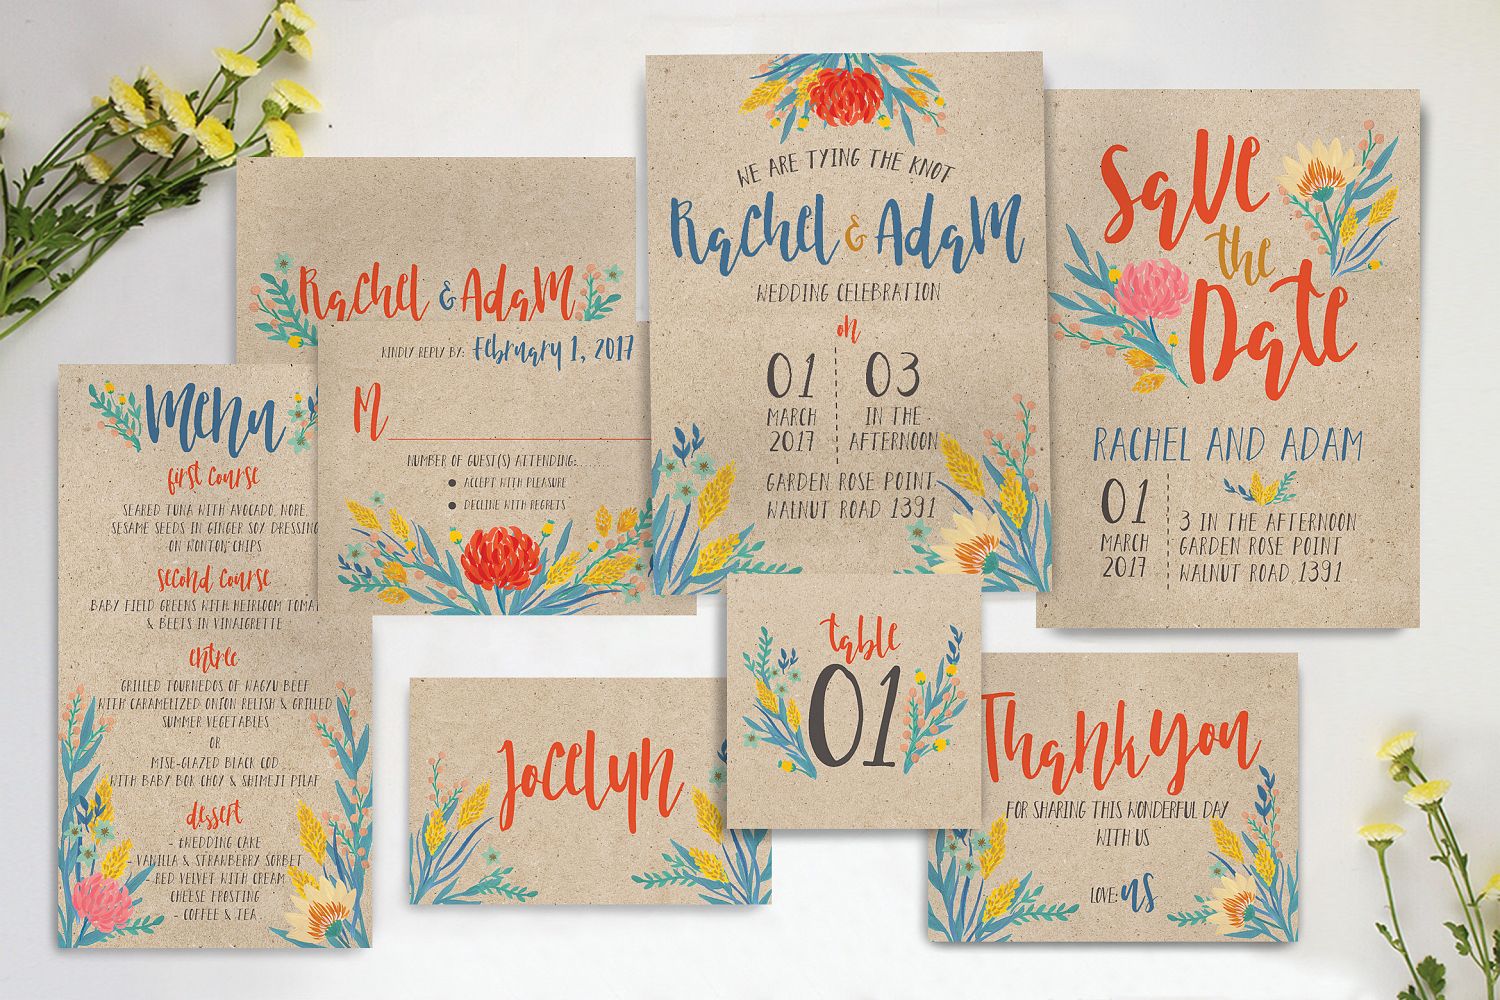 Rachel & Adam
KINDLY REPLY BY: February 1, 2017
M
NUMBER OF GUEST(S) ATTENDING:......
ACCEPT WITH PLEASURE
DECLINE WITH REGRETS
WE ARE TYING THE KNOT
Rachel & Adam
WEDDING CELEBRATION
on
01 03
MARCH IN THE
2017 AFTERNOON
GARDEN ROSE POINT
WALNUT ROAD 1391
Save
the
Date
RACHEL AND ADAM
01
MARCH
2017
3 IN THE AFTERNOON
GARDEN ROSE POINT
WALNUT ROAD 1391
Menu
first course
SEARED TUNA WITH AVOCADO, NORE,
SESAME SEEDS IN GINGER SOY DRESSING
ON WONTON CHIPS
second course
BABY FIELD GREENS WITH HEIRLOOM TOMAT
& BEETS IN VINAIGRETTE
entree
GRILLED TOURNEDOS OF WAGYU BEEF
WITH CARAMELIZED ONION RELISH & GRILLED
SUMMER VEGETABLES
OR
MISE-GLAZED BLACK COD
WITH BABY BOK CHOY & SHIMEJI PILAF
dessert
- WEDDING CAKE
- VANILLA & STRAWBERRY SORBET
- RED VELVET WITH CREAM
CHEESE FROSTING
- COFFEE & TEA
Jocelyn
table
01
Thank you
FOR SHARING THIS WONDERFUL DAY
WITH US
LOVE: us